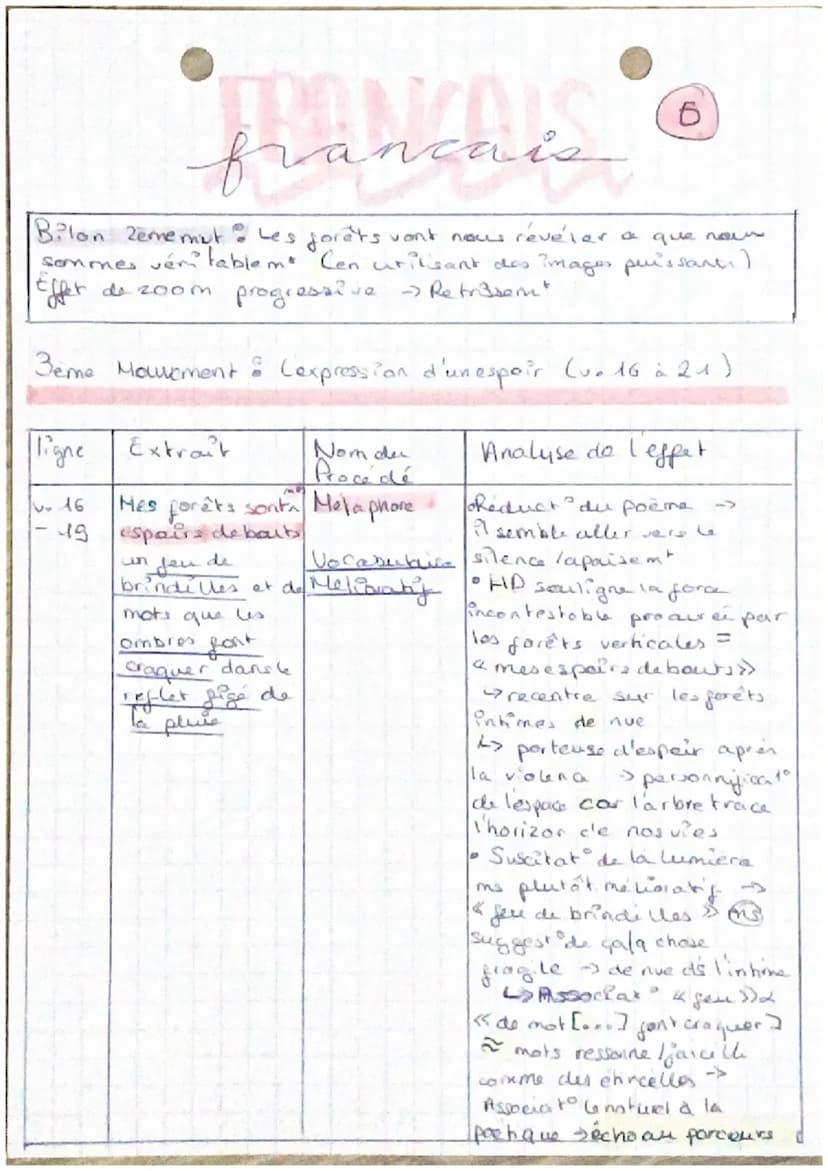 FRANCAIS
francais
5
Bilan 2ememvt : Les forêts vont nous révéler a que nous
sommes véritablemt (en utilisant des images puissants)
Effet de zoom progressive → Retrissemt
3ème Mouvement : L'expression d'un espoir (v. 16 à 21)
ligne
Extrait
Nom du
Procédé
Analyse de l'effet
v. 16
- 19
Mes forêts sont
espoirs debouts
un feu de
brindilles et de
mots que les
ombres font
craquer dans le
reflet figé de
la pluie
Métaphore
Vocabulaire
Mélioratif
• Réduct° du poème →
il semble aller vers le
silence / apaisemt
• HD souligne la force
incontestable procurée par
les forêts verticales =
« mes espoirs debouts »
↳ recentre sur les forêts
intimes de nue
↳ porteuse d'espoir après
la violence → personnificat°
de l'espace car l'arbre trace
l'horizon de nos vies
• Suscitat° de la lumière
ms plutôt mélioratif →
« feu de brindilles » ms
suggest° de qqlq chose
fragile → de nue ds l'intime
↳ Associat° « feu » &
« de mot [...] font craquer »
≈ mots ressone / jaicille
comme des étincelles →
Associat° le naturel à la
poétique → écho au parcours